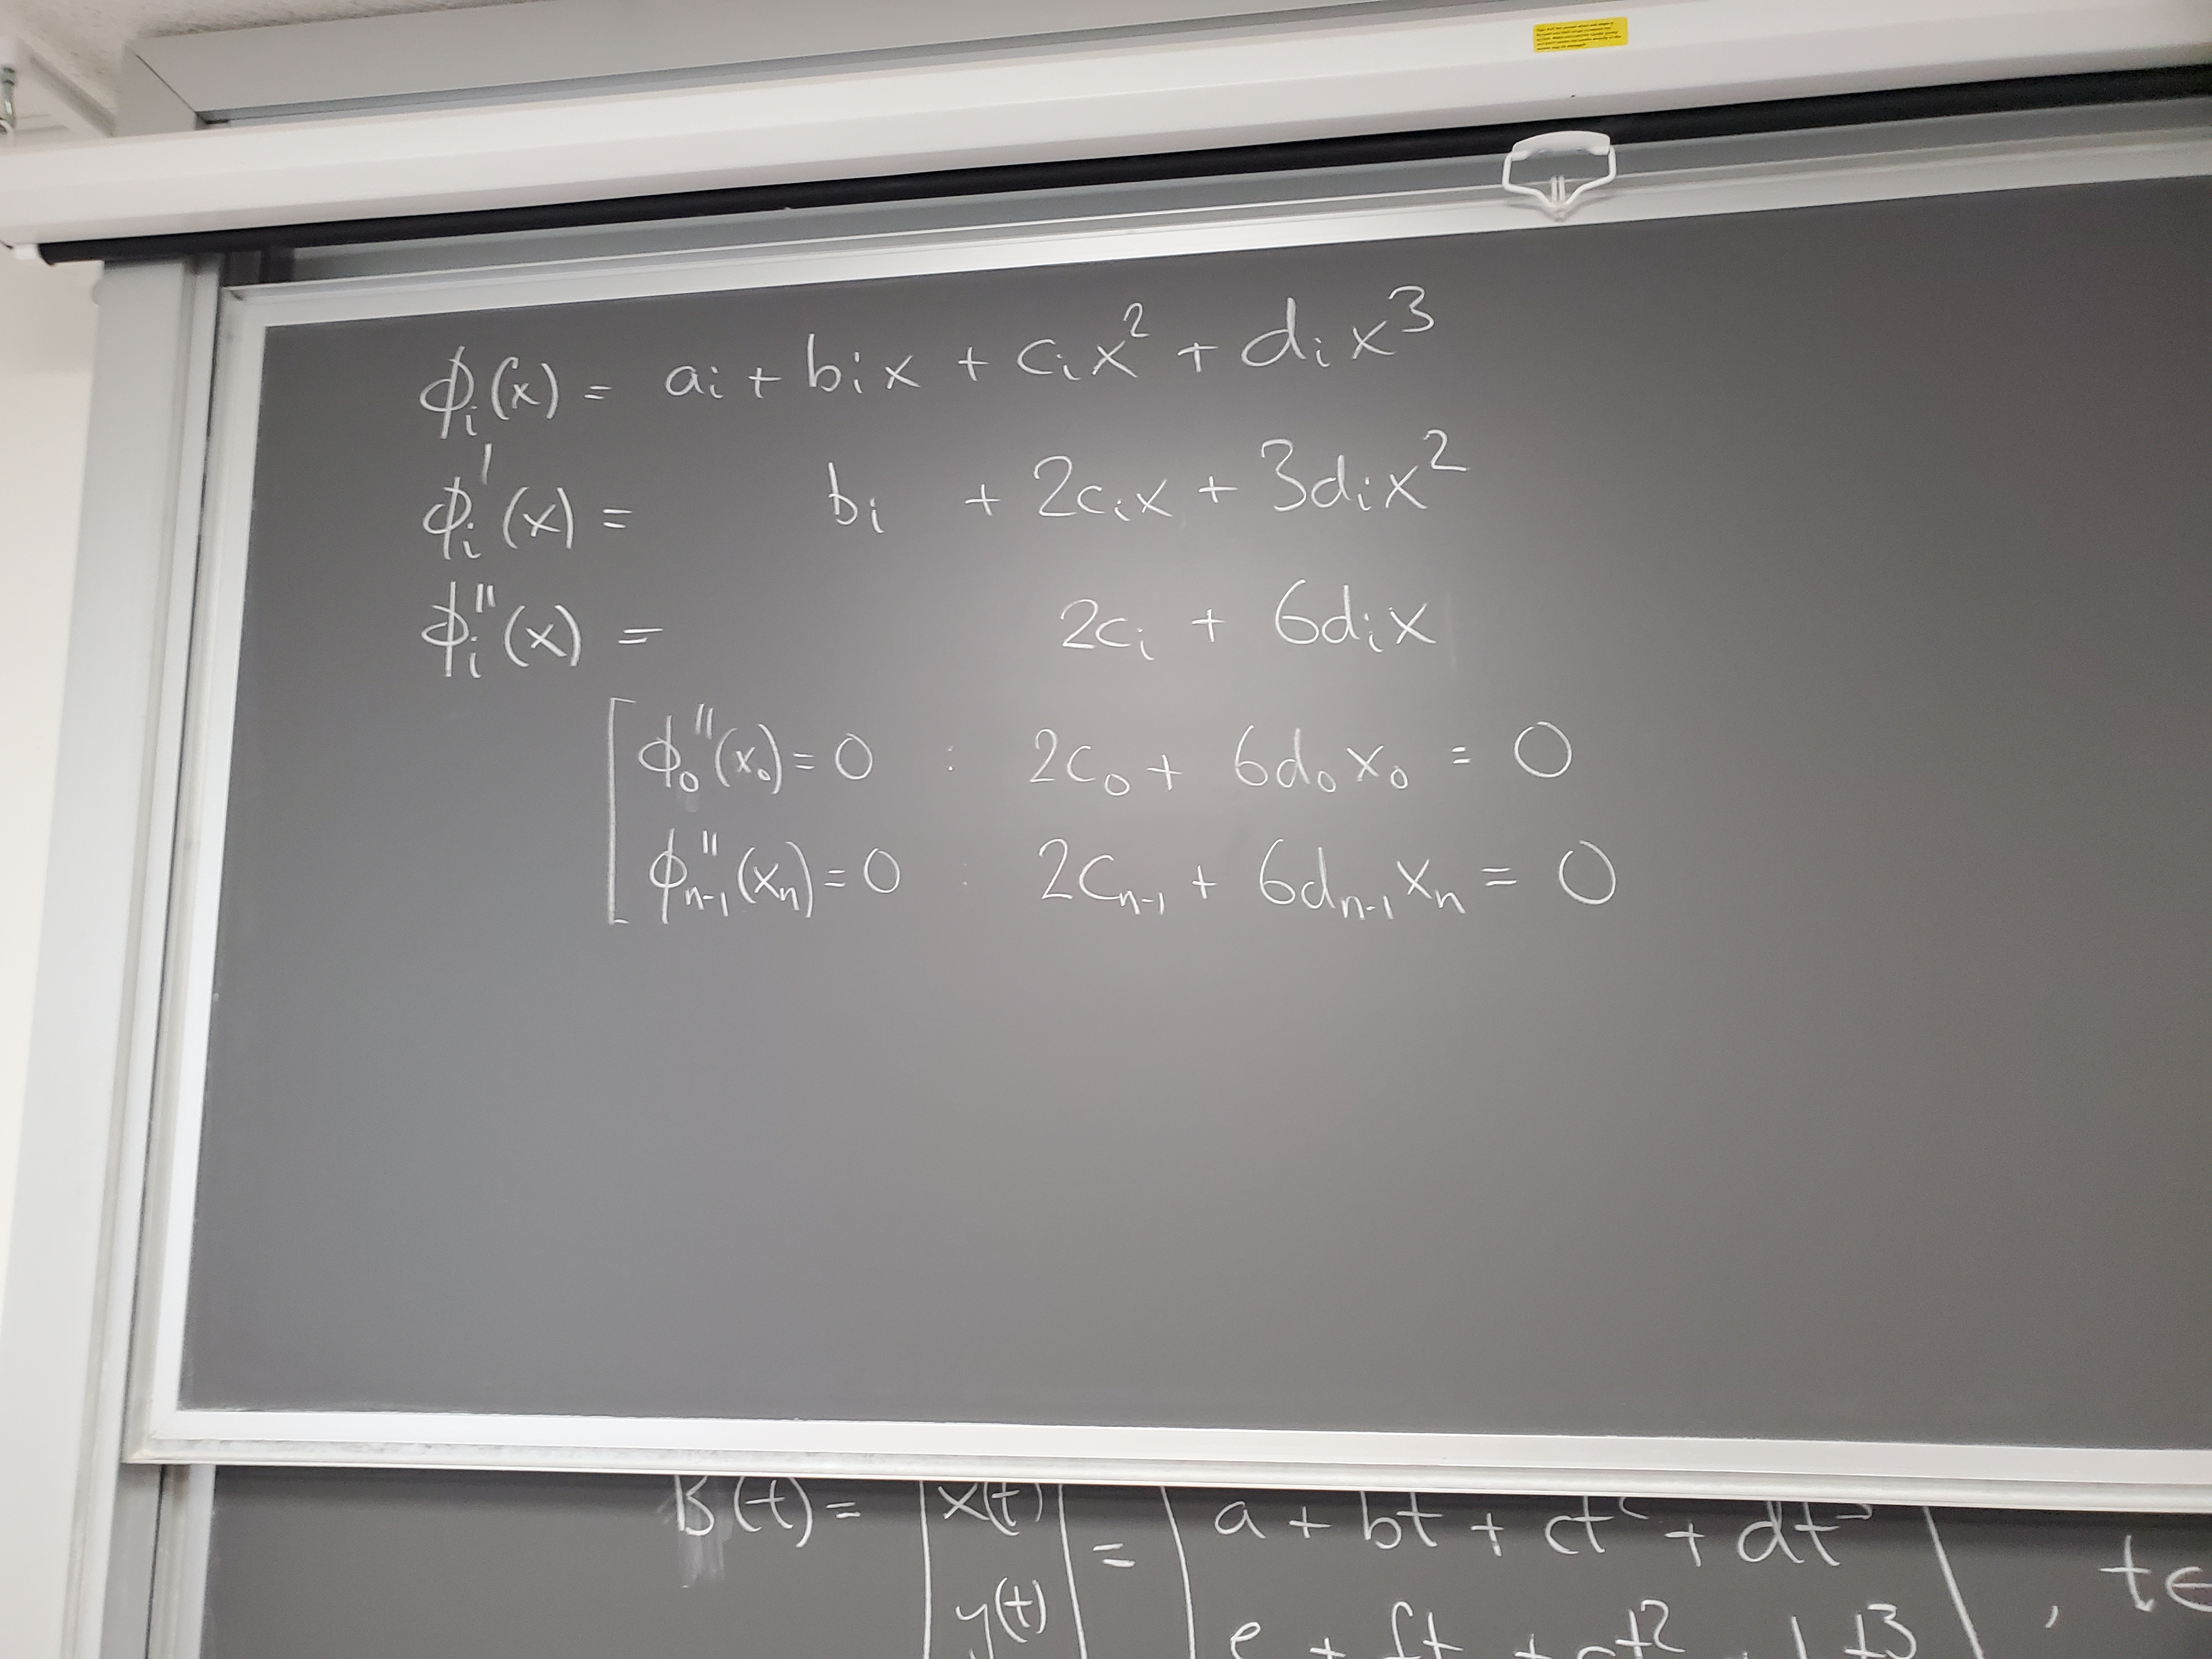 ϕᵢ(x) = aᵢ + bᵢx + cᵢx² + dᵢx³
ϕᵢ'(x) = bᵢ + 2cᵢx + 3dᵢx²
ϕᵢ''(x) = 2cᵢ + 6dᵢx
ϕ₀''(x₀) = 0 : 2c₀ + 6d₀x₀ = 0
ϕₙ₋₁''(xₙ) = 0 : 2cₙ₋₁ + 6dₙ₋₁xₙ = 0
B(t) = | x(t) | = | a + bt + ct² + dt³ | , t∈
y(t) e + ft + gt² + ht³